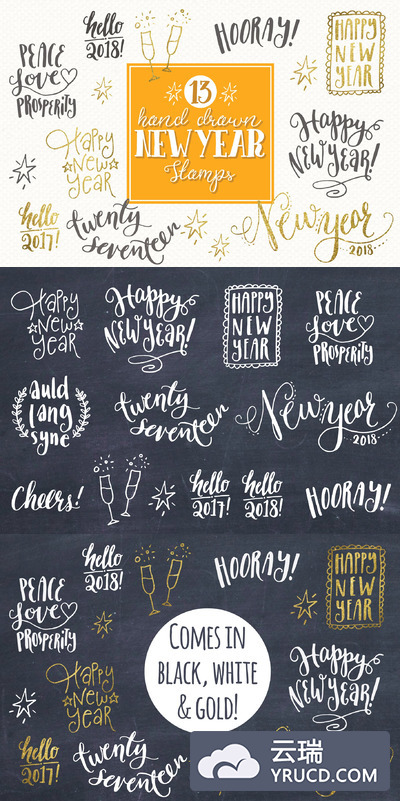 hello
2018!
HOORAY!
HAPPY
NEW
YEAR
PEACE
Love
PROSPERITY
13
hand drawn
NEW YEAR
Stamps
Happy
New
Year
Happy
NEW YEAR!
hello
2017!
twenty
seventeen
New year
2018
Happy
New
Year
Happy
NEW YEAR!
HAPPY
NEW
YEAR
PEACE
Love
PROSPERITY
auld
lang
syne
twenty
seventeen
New year
2018
Cheers!
hello
2017!
hello
2018!
HOORAY!
hello
2018!
HOORAY!
HAPPY
NEW
YEAR
PEACE
Love
PROSPERITY
COMES IN
BLACK, WHITE
& GOLD!
Happy
New
Year
Happy
NEW YEAR!
hello
2017!
twenty
seventeen
云瑞
YRUCD.COM